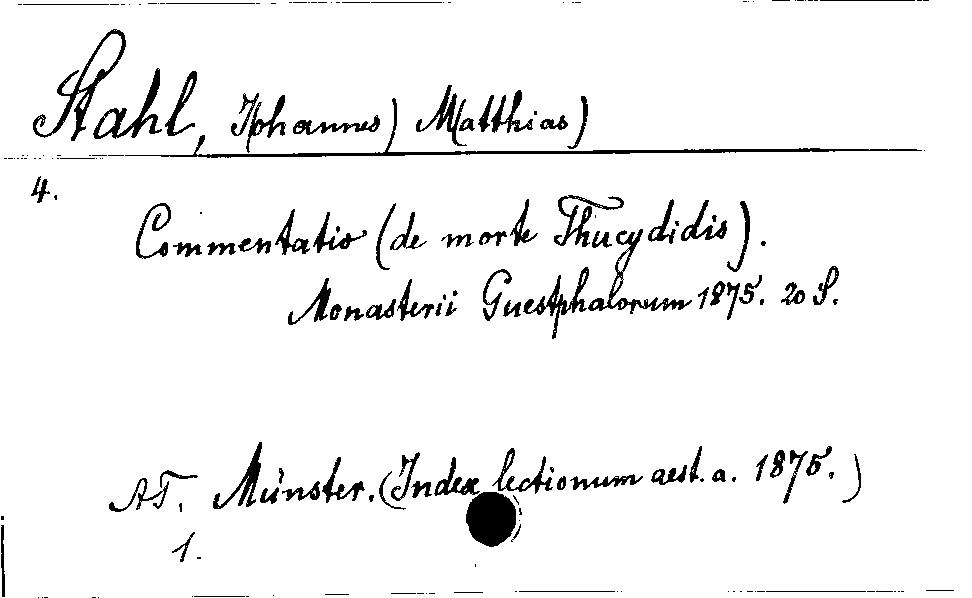 Stahl, J(ohannes) M(atthias)
4.
Commentatio (de morte Thucydidis).
Monasterii Guestphalorum 1875. 20 S.
AT. Münster. (Index lectionum aest. a. 1875.)
1.